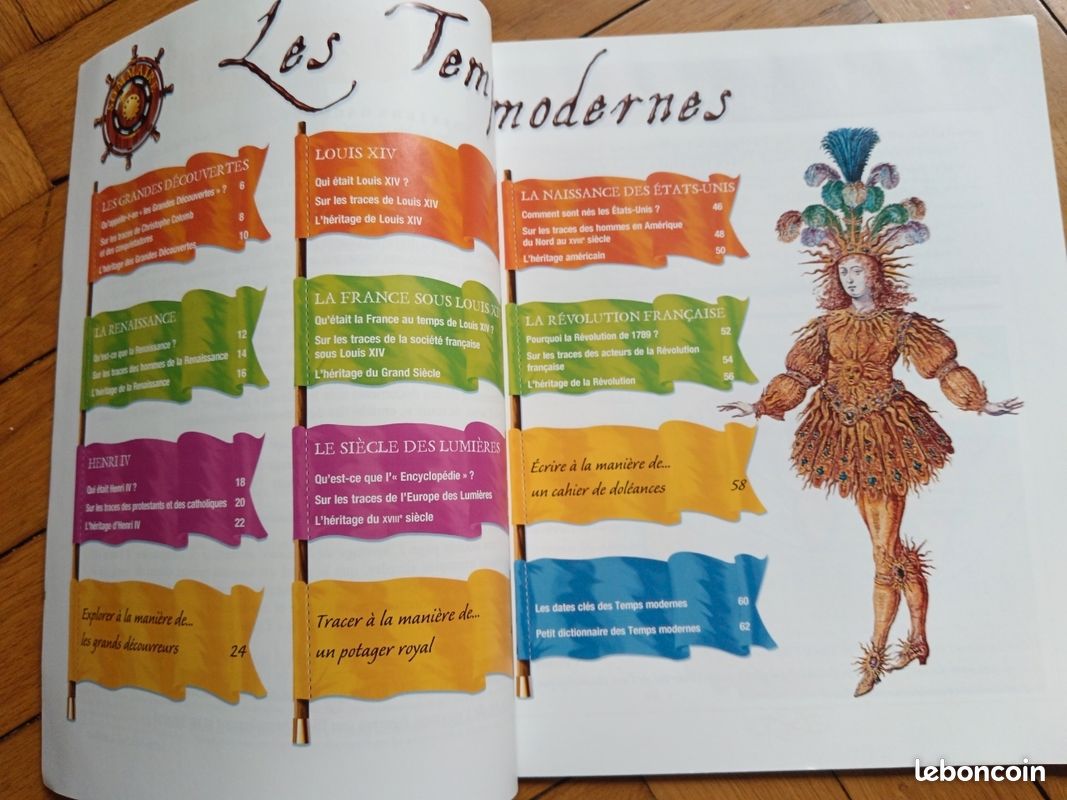 Les Tem
modernes
SOMMAIRE
LES GRANDES DÉCOUVERTES
Qu'appelle-t-on « les Grandes Découvertes » ? 6
Sur les traces de Christophe Colomb
et des conquistadores 8
L'héritage des Grandes Découvertes 10
LA RENAISSANCE
Qu'est-ce que la Renaissance ? 12
Sur les traces des hommes de la Renaissance 14
L'héritage de la Renaissance 16
HENRI IV
Qui était Henri IV ? 18
Sur les traces des protestants et des catholiques 20
L'héritage d'Henri IV 22
Explorer à la manière de...
les grands découvreurs 24
LOUIS XIV
Qui était Louis XIV ?
Sur les traces de Louis XIV
L'héritage de Louis XIV
LA FRANCE SOUS LOUIS XI
Qu'était la France au temps de Louis XIV ?
Sur les traces de la société française
sous Louis XIV
L'héritage du Grand Siècle
LE SIÈCLE DES LUMIÈRES
Qu'est-ce que l'« Encyclopédie » ?
Sur les traces de l'Europe des Lumières
L'héritage du XVIIIe siècle
Tracer à la manière de...
un potager royal
LA NAISSANCE DES ÉTATS-UNIS
Comment sont nés les États-Unis ? 46
Sur les traces des hommes en Amérique
du Nord au XVIIIe siècle 48
L'héritage américain 50
LA RÉVOLUTION FRANÇAISE
Pourquoi la Révolution de 1789 ? 52
Sur les traces des acteurs de la Révolution
française 54
L'héritage de la Révolution 56
Écrire à la manière de...
un cahier de doléances 58
Les dates clés des Temps modernes 60
Petit dictionnaire des Temps modernes 62
leboncoin